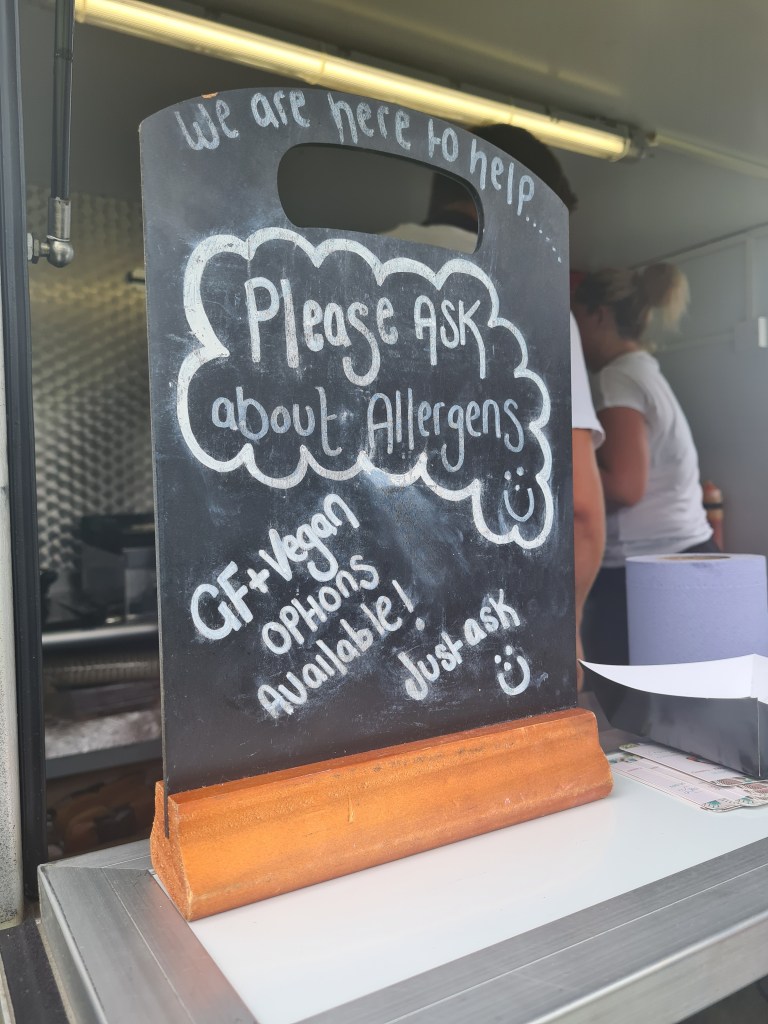 We are here to help......
Please ASK
about Allergens
GF+Vegan
OPtIONS
Available!
Just ask